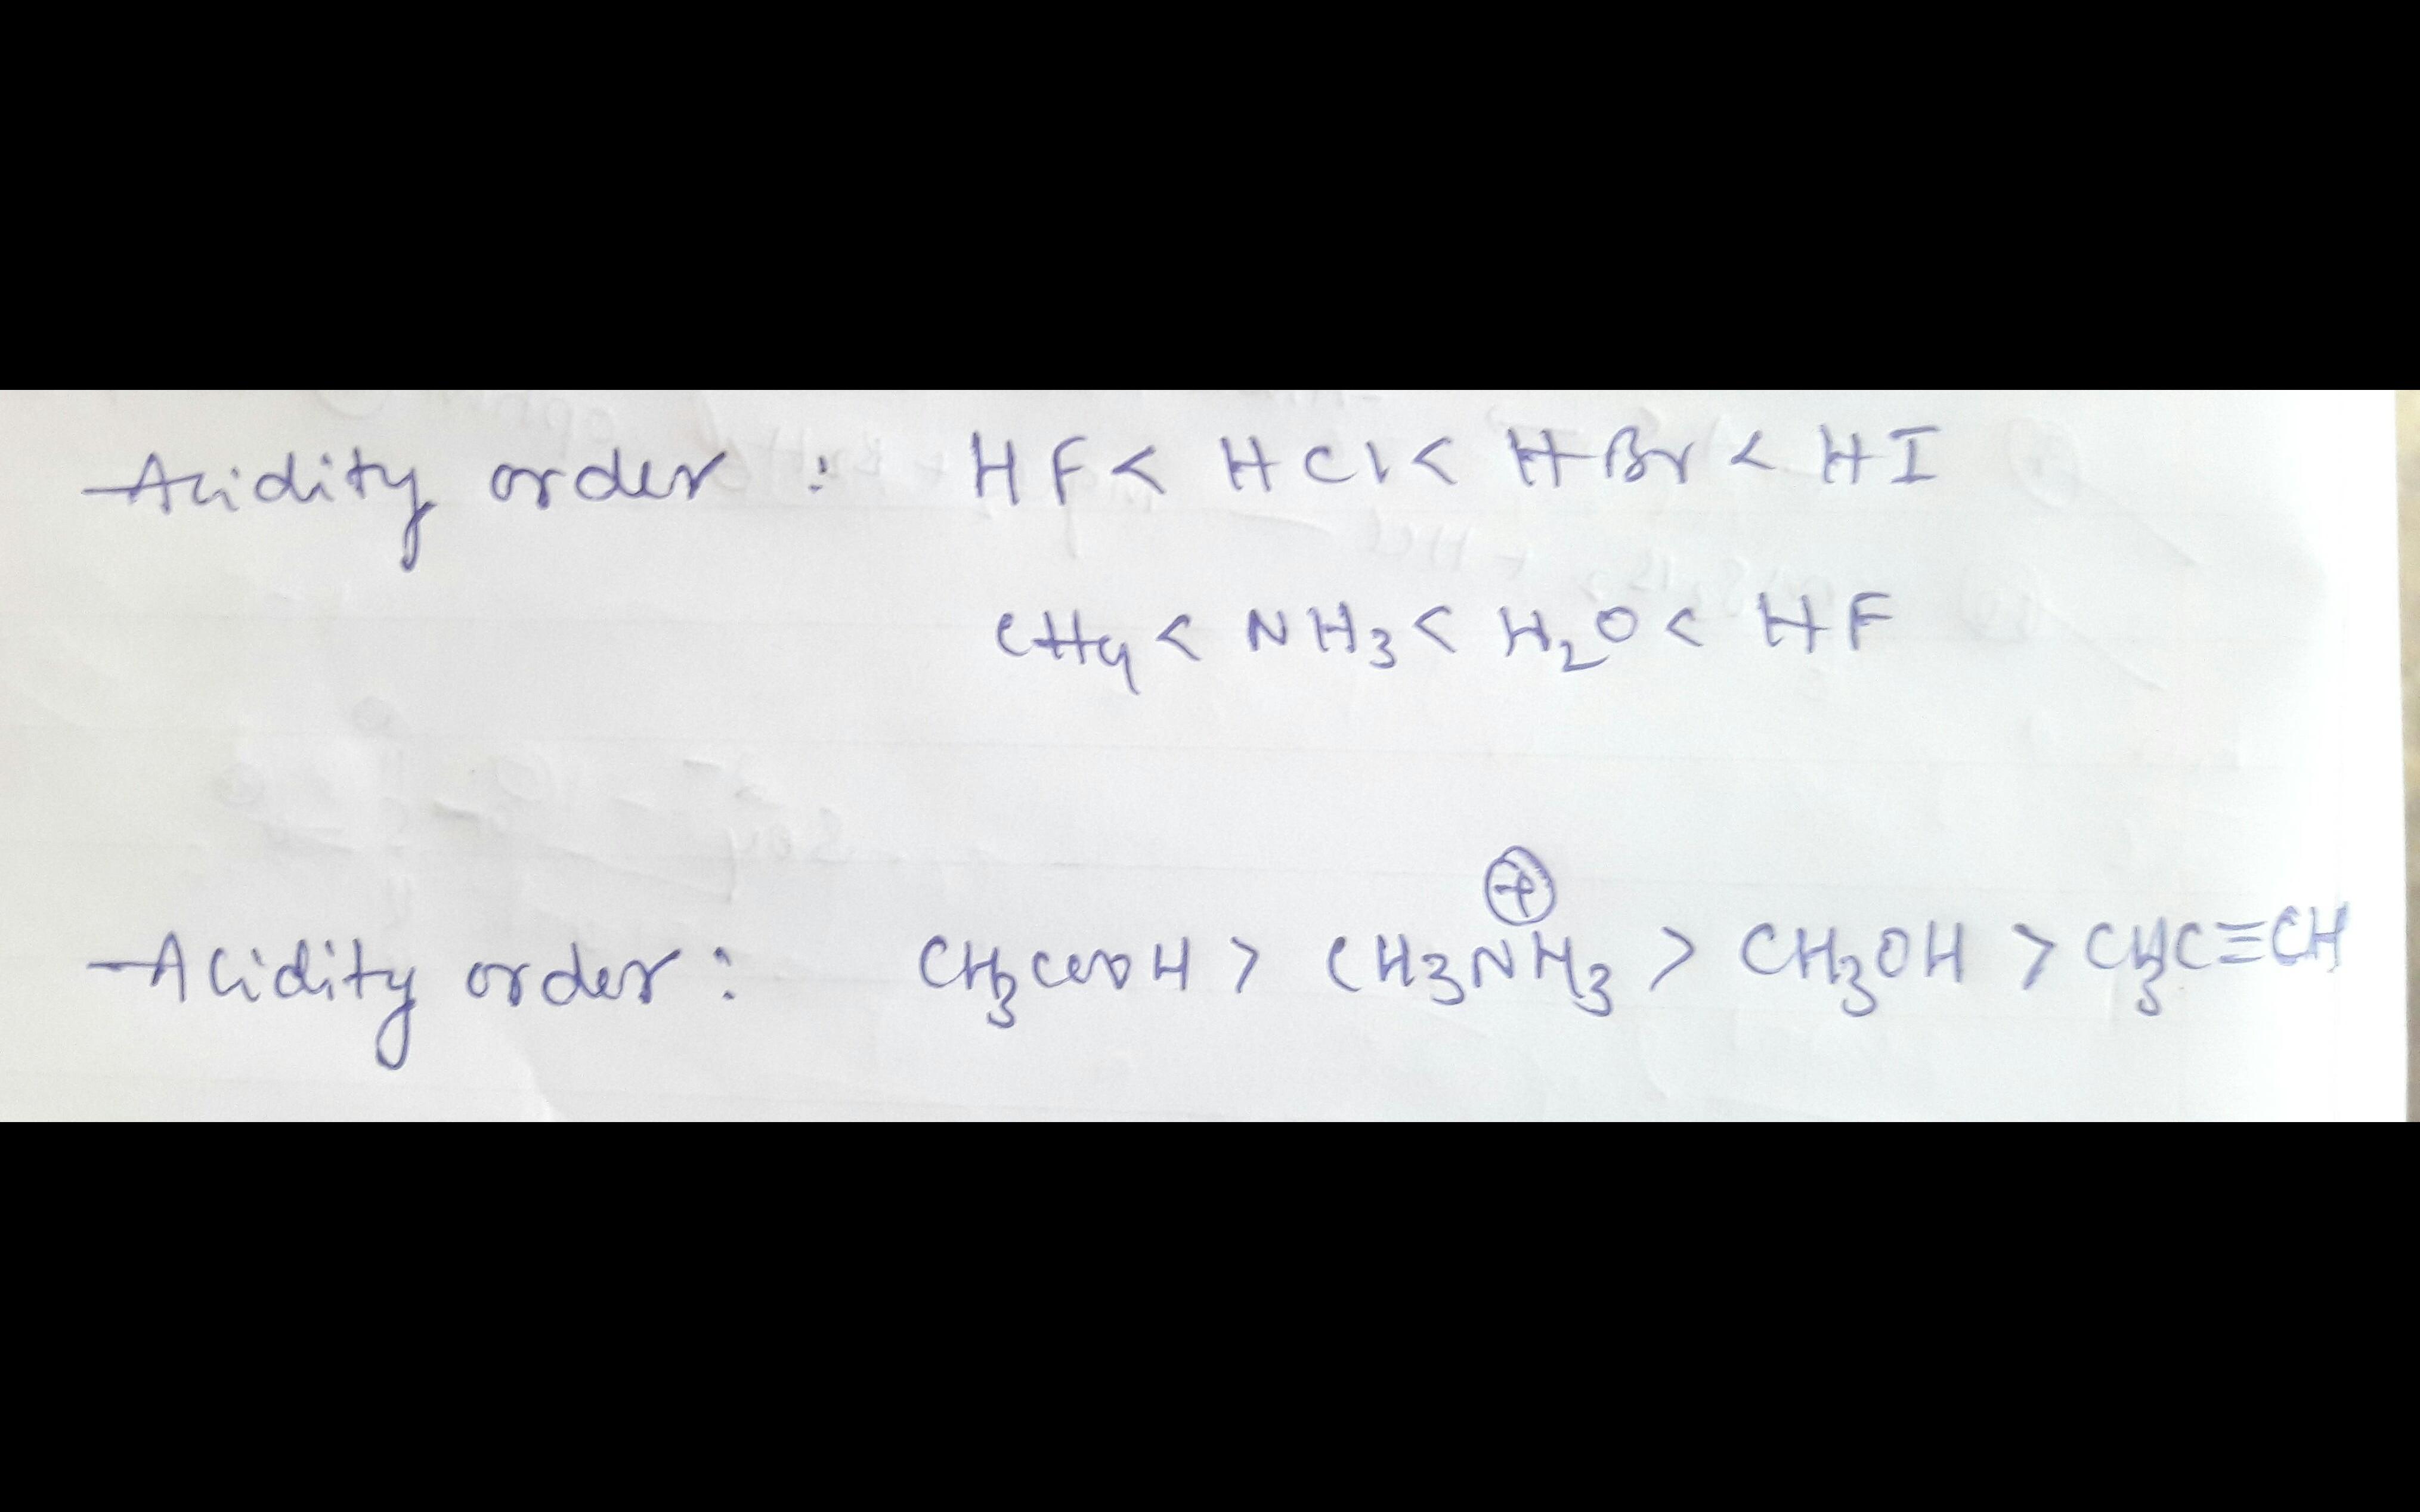 Acidity order : HF < HCl < HBr < HI
CH₄ < NH₃ < H₂O < HF
Acidity order : CH₃COOH > CH₃N⊕H₃ > CH₃OH > CH₃C≡CH